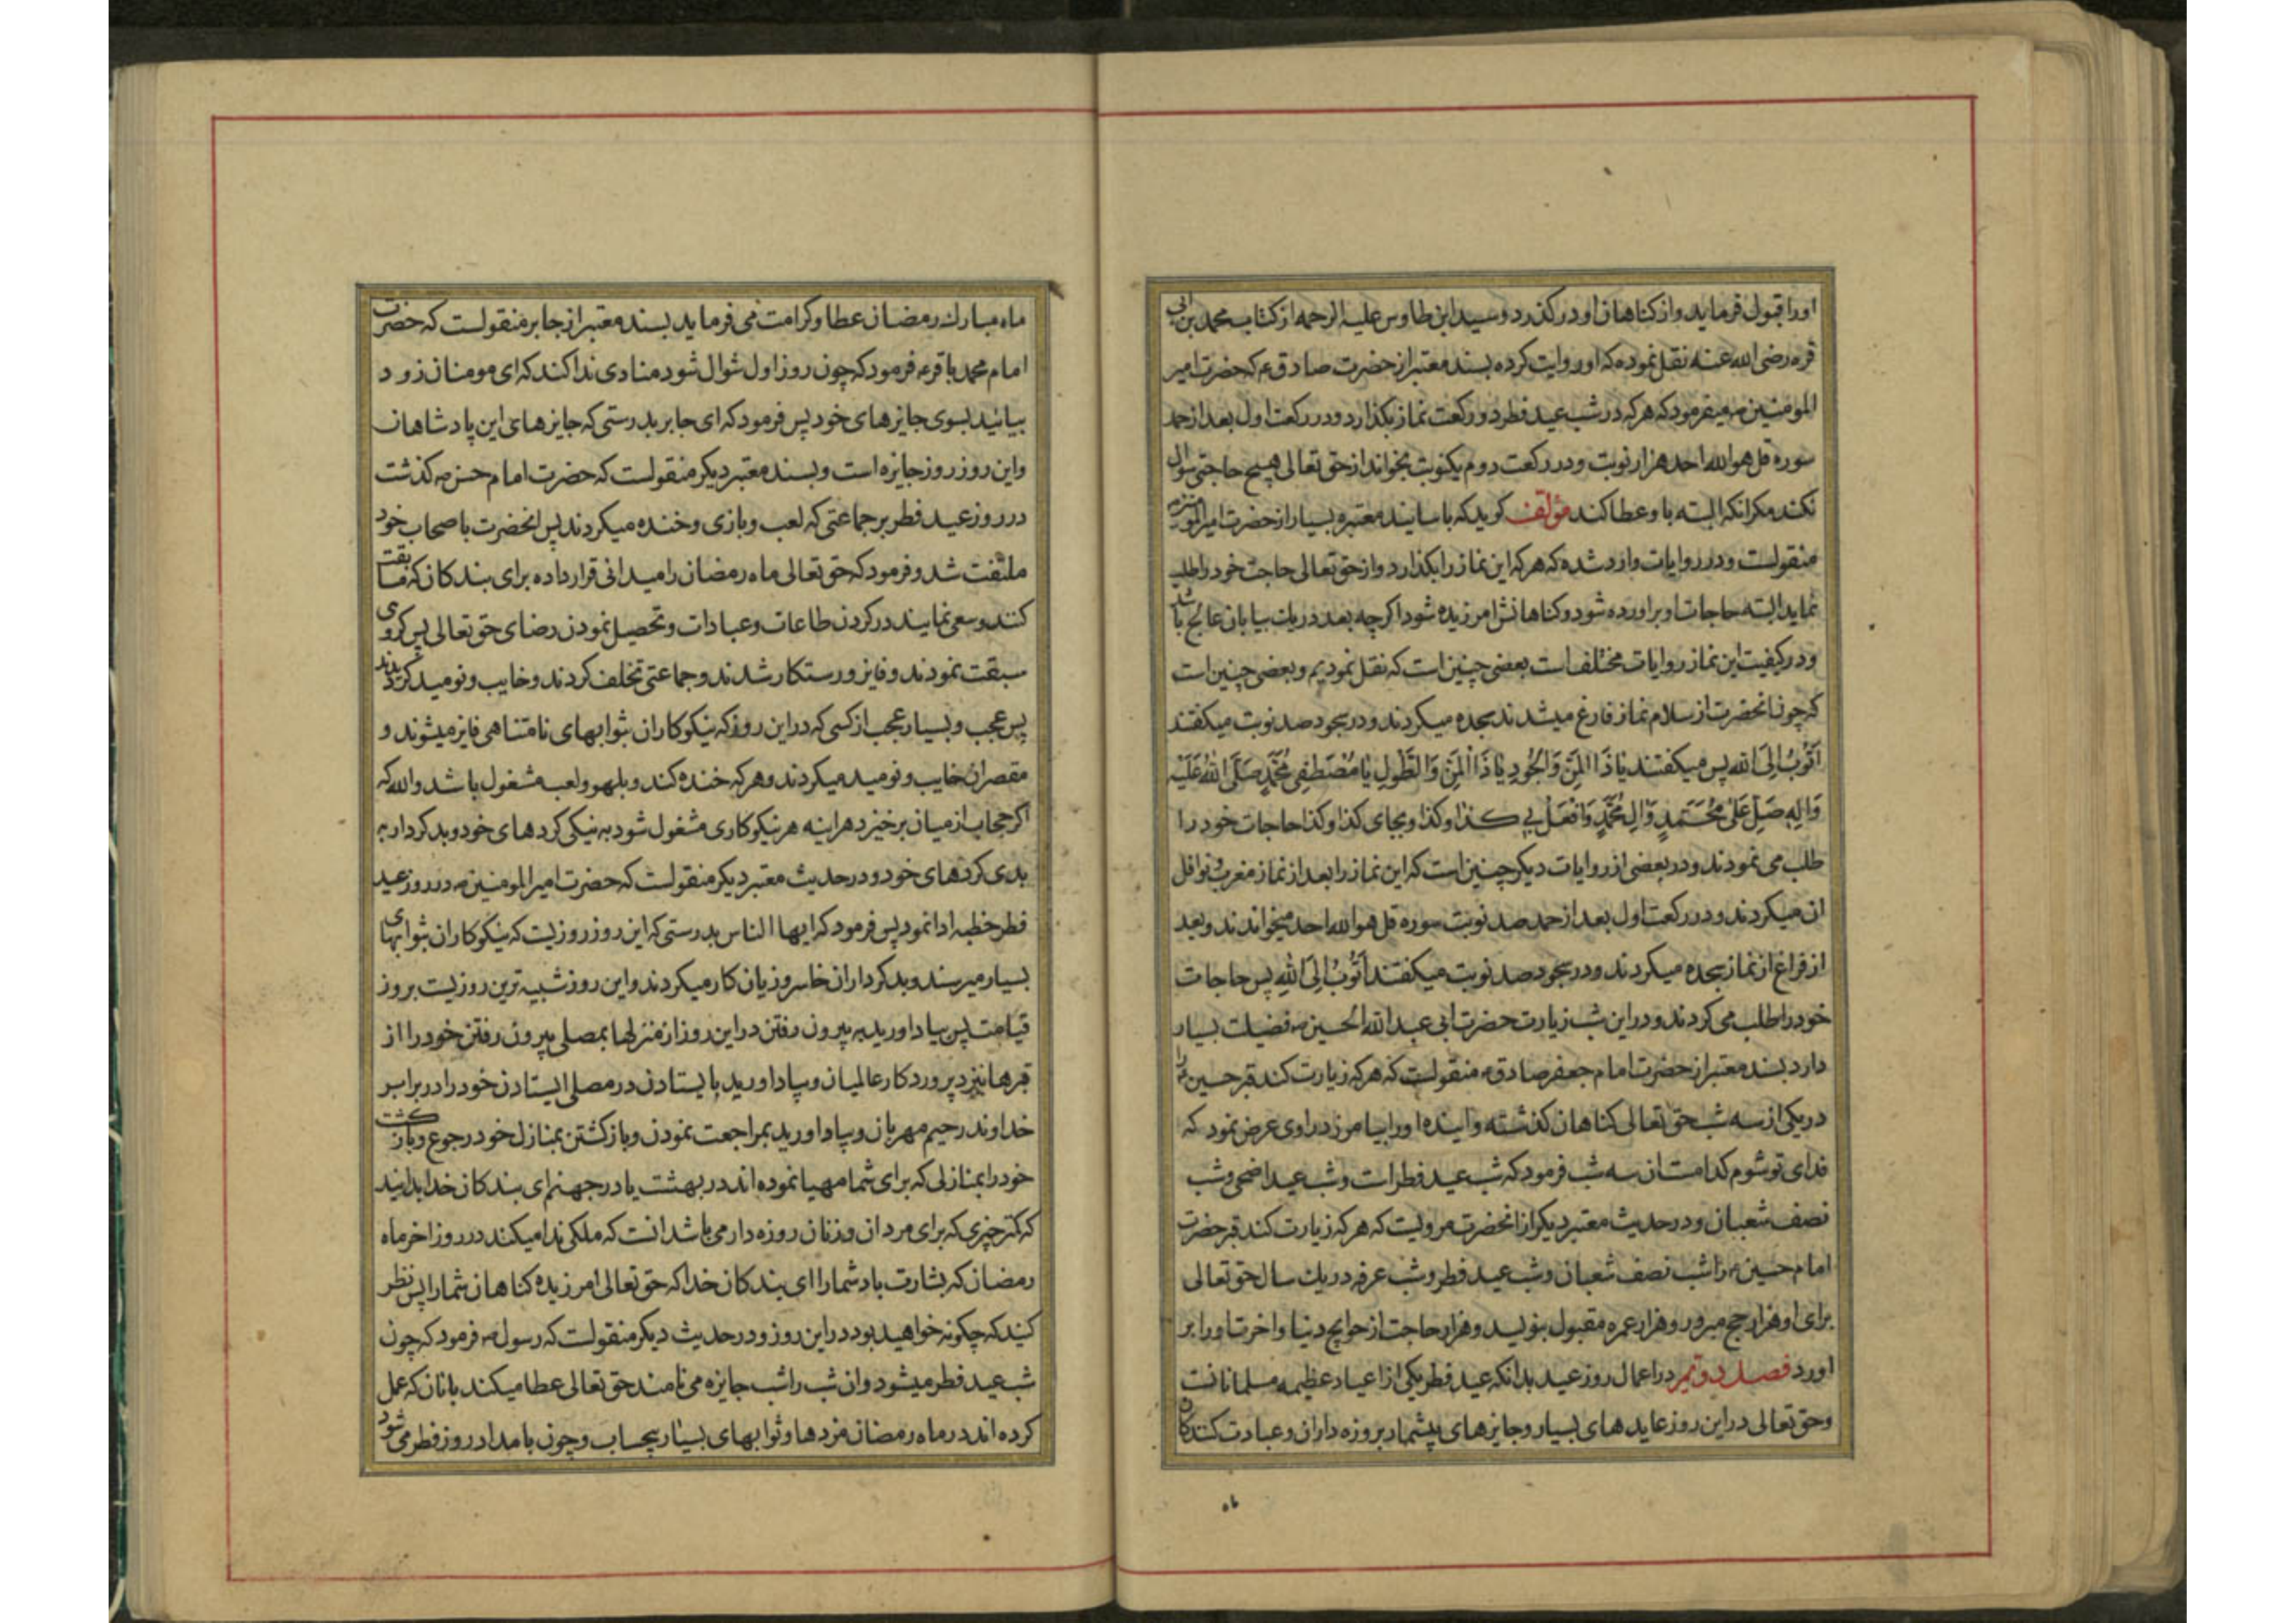 اورا قبول فرماید و از کناهان او در کذرد و سید ابن طاوس علیه الرحمه از کتاب محمد بن ابی
قره رضی الله عنه نقل نموده که او روایت کرده بسند معتبر از حضرت صادق ع که حضرت امیر
المومنین ع میفرمود که هر که در شب عید فطر دو رکعت نماز بکذارد و در رکعت اول بعد از حمد
سوره قل هو الله احد هزار نوبت و در رکعت دوم یکنوبت بخواند از حق تعالی هیچ حاجتی سوال
نکند مکر انکه البته باو عطا کند مؤلف کوید که باسانید معتبره بسیار از حضرت امیر المومنین ع
منقولست و در روایات وارد شده که هر که این نماز را بکذارد و از حق تعالی حاجت خود را طلب
نماید البته حاجات او براورده شود و کناهانش امرزیده شود اکرچه بعدد ریك بیابان عالج باشد
و در کیفیت این نماز روایات مختلف است بعضی چنین است که نقل نمودیم و بعضی چنین است
که چون انحضرت از سلام نماز فارغ میشدند بسجده میکردند و در سجود صد نوبت میکفتند
اَتُوبُ اِلَی الله پس میکفتند یا ذَا الْمَنِّ وَالْجُودِ یا ذَا الْمَنِّ وَالطَّوْلِ یا مُصْطَفِیَ مُحَمَّدٍ صَلَّی اللهُ عَلَیْهِ
وَالِهِ صَلِّ عَلی مُحَمَّدٍ وَالِ مُحَمَّدٍ وَافْعَلْ بی کذا و کذا و بجای کذا و کذا حاجات خود را
طلب می نمودند و در بعضی از روایات دیکر چنین است که این نماز را بعد از نماز مغرب و نوافل
ان میکردند و در رکعت اول بعد از حمد صد نوبت سوره قل هو الله احد میخواندند و بعد
از فراغ از نماز بسجده میکردند و در سجود صد نوبت میکفتند اَتُوبُ اِلَی اللهِ پس حاجات
خود را طلب می کردند و در این شب زیارت حضرت ابی عبد الله الحسین ع فضیلت بسیار
دارد بسند معتبر از حضرت امام جعفر صادق ع منقولست که هر که زیارت کند قبر حسین ع را
در یکی از سه شب حق تعالی کناهان کذشته و اینده او را بیامرزد راوی عرض نمود که
فدای تو شوم کدامست ان سه شب فرمود که شب عید فطر است و شب عید اضحی و شب
نصف شعبان و در حدیث معتبر دیکر از انحضرت مرویست که هر که زیارت کند قبر حضرت
امام حسین ع را شب نصف شعبان و شب عید فطر و شب عرفه در یك سال حق تعالی
برای او هزار حج مبرور و هزار عمره مقبول بنویسد و هزار حاجت از حوایج دنیا و اخرت او را بر
اورد فصل دوم در اعمال روز عید بدانکه عید فطر یکی از اعیاد عظیمه مسلمانانست
و حق تعالی در این روز عایدهای بسیار و جایزهای بیشمار بروزه داران و عبادت کنندکان
ماه مبارك رمضان عطا و کرامت می فرماید بسند معتبر از جابر منقولست که حضرت
امام محمد باقر ع فرمود که چون روز اول شوال شود منادی ندا کند که ای مومنان زود
بیائید بسوی جایزهای خود پس فرمود که ای جابر بدرستی که جایزهای این پادشاهان
و این روز روز جایزه است و بسند معتبر دیکر منقولست که حضرت امام حسن ع کذشت
در روز عید فطر بر جماعتی که لعب و بازی و خنده میکردند پس انحضرت باصحاب خود
ملتفت شد و فرمود که حق تعالی ماه رمضان را میدانی قرار داده برای بندکان که مسابقت
کنند و سعی نمایند در کردن طاعات و عبادات و تحصیل نمودن رضای حق تعالی پس کروی
سبقت نمودند و فایز و رستکار شدند و جماعتی تخلف کردند و خایب و نومید کردیدند
پس عجب و بسیار عجب از کسی که در این روز که نیکوکاران بثوابهای نامتناهی فایز میشوند و
مقصران خایب و نومید میکردند و هر که خنده کند و بلهو و لعب مشغول باشد والله که
اکر حجاب از میان برخیزد هراینه هر نیکوکاری مشغول شود به نیکی کردهای خود و بد کردار به
بدی کردهای خود و در حدیث معتبر دیکر منقولست که حضرت امیر المومنین ع در روز عید
فطر خطبه ادا نمود پس فرمود که ایها الناس بدرستی که این روز روزیست که نیکوکاران بثوابهای
بسیار میرسند و بدکرداران خاسر و زیان کار میکردند و این روز شبیه ترین روزیست بروز
قیامت پس بیاد اورید به بیرون رفتن در این روز از منزلها بمصلی بیرون رفتن خود را از
قبرها نزد پروردکار عالمیان و بیاد اورید بایستادن در مصلی ایستادن خود را در برابر
خداوند رحیم مهربان و بیاد اورید بمراجعت نمودن و باز کشتن بمنازل خود رجوع و باز کشت
خود را بمنازلی که برای شما مهیا نموده اند در بهشت یا در جهنم ای بندکان خدا بدانید
که کمتر چیزی که برای مردان و زنان روزه دار می باشد انست که ملکی ندا میکند در روز اخر ماه
رمضان که بشارت باد شما را ای بندکان خدا که حق تعالی امرزیده کناهان شما را پس نظر
کنید که چکونه خواهید بود در این روز و در حدیث دیکر منقولست که رسول ص فرمود که چون
شب عید فطر میشود و ان شب را شب جایزه می نامند حق تعالی عطا میکند بانان که عمل
کرده اند در ماه رمضان مزدها و ثوابهای بسیار بیحساب و چون بامداد روز فطر می شود